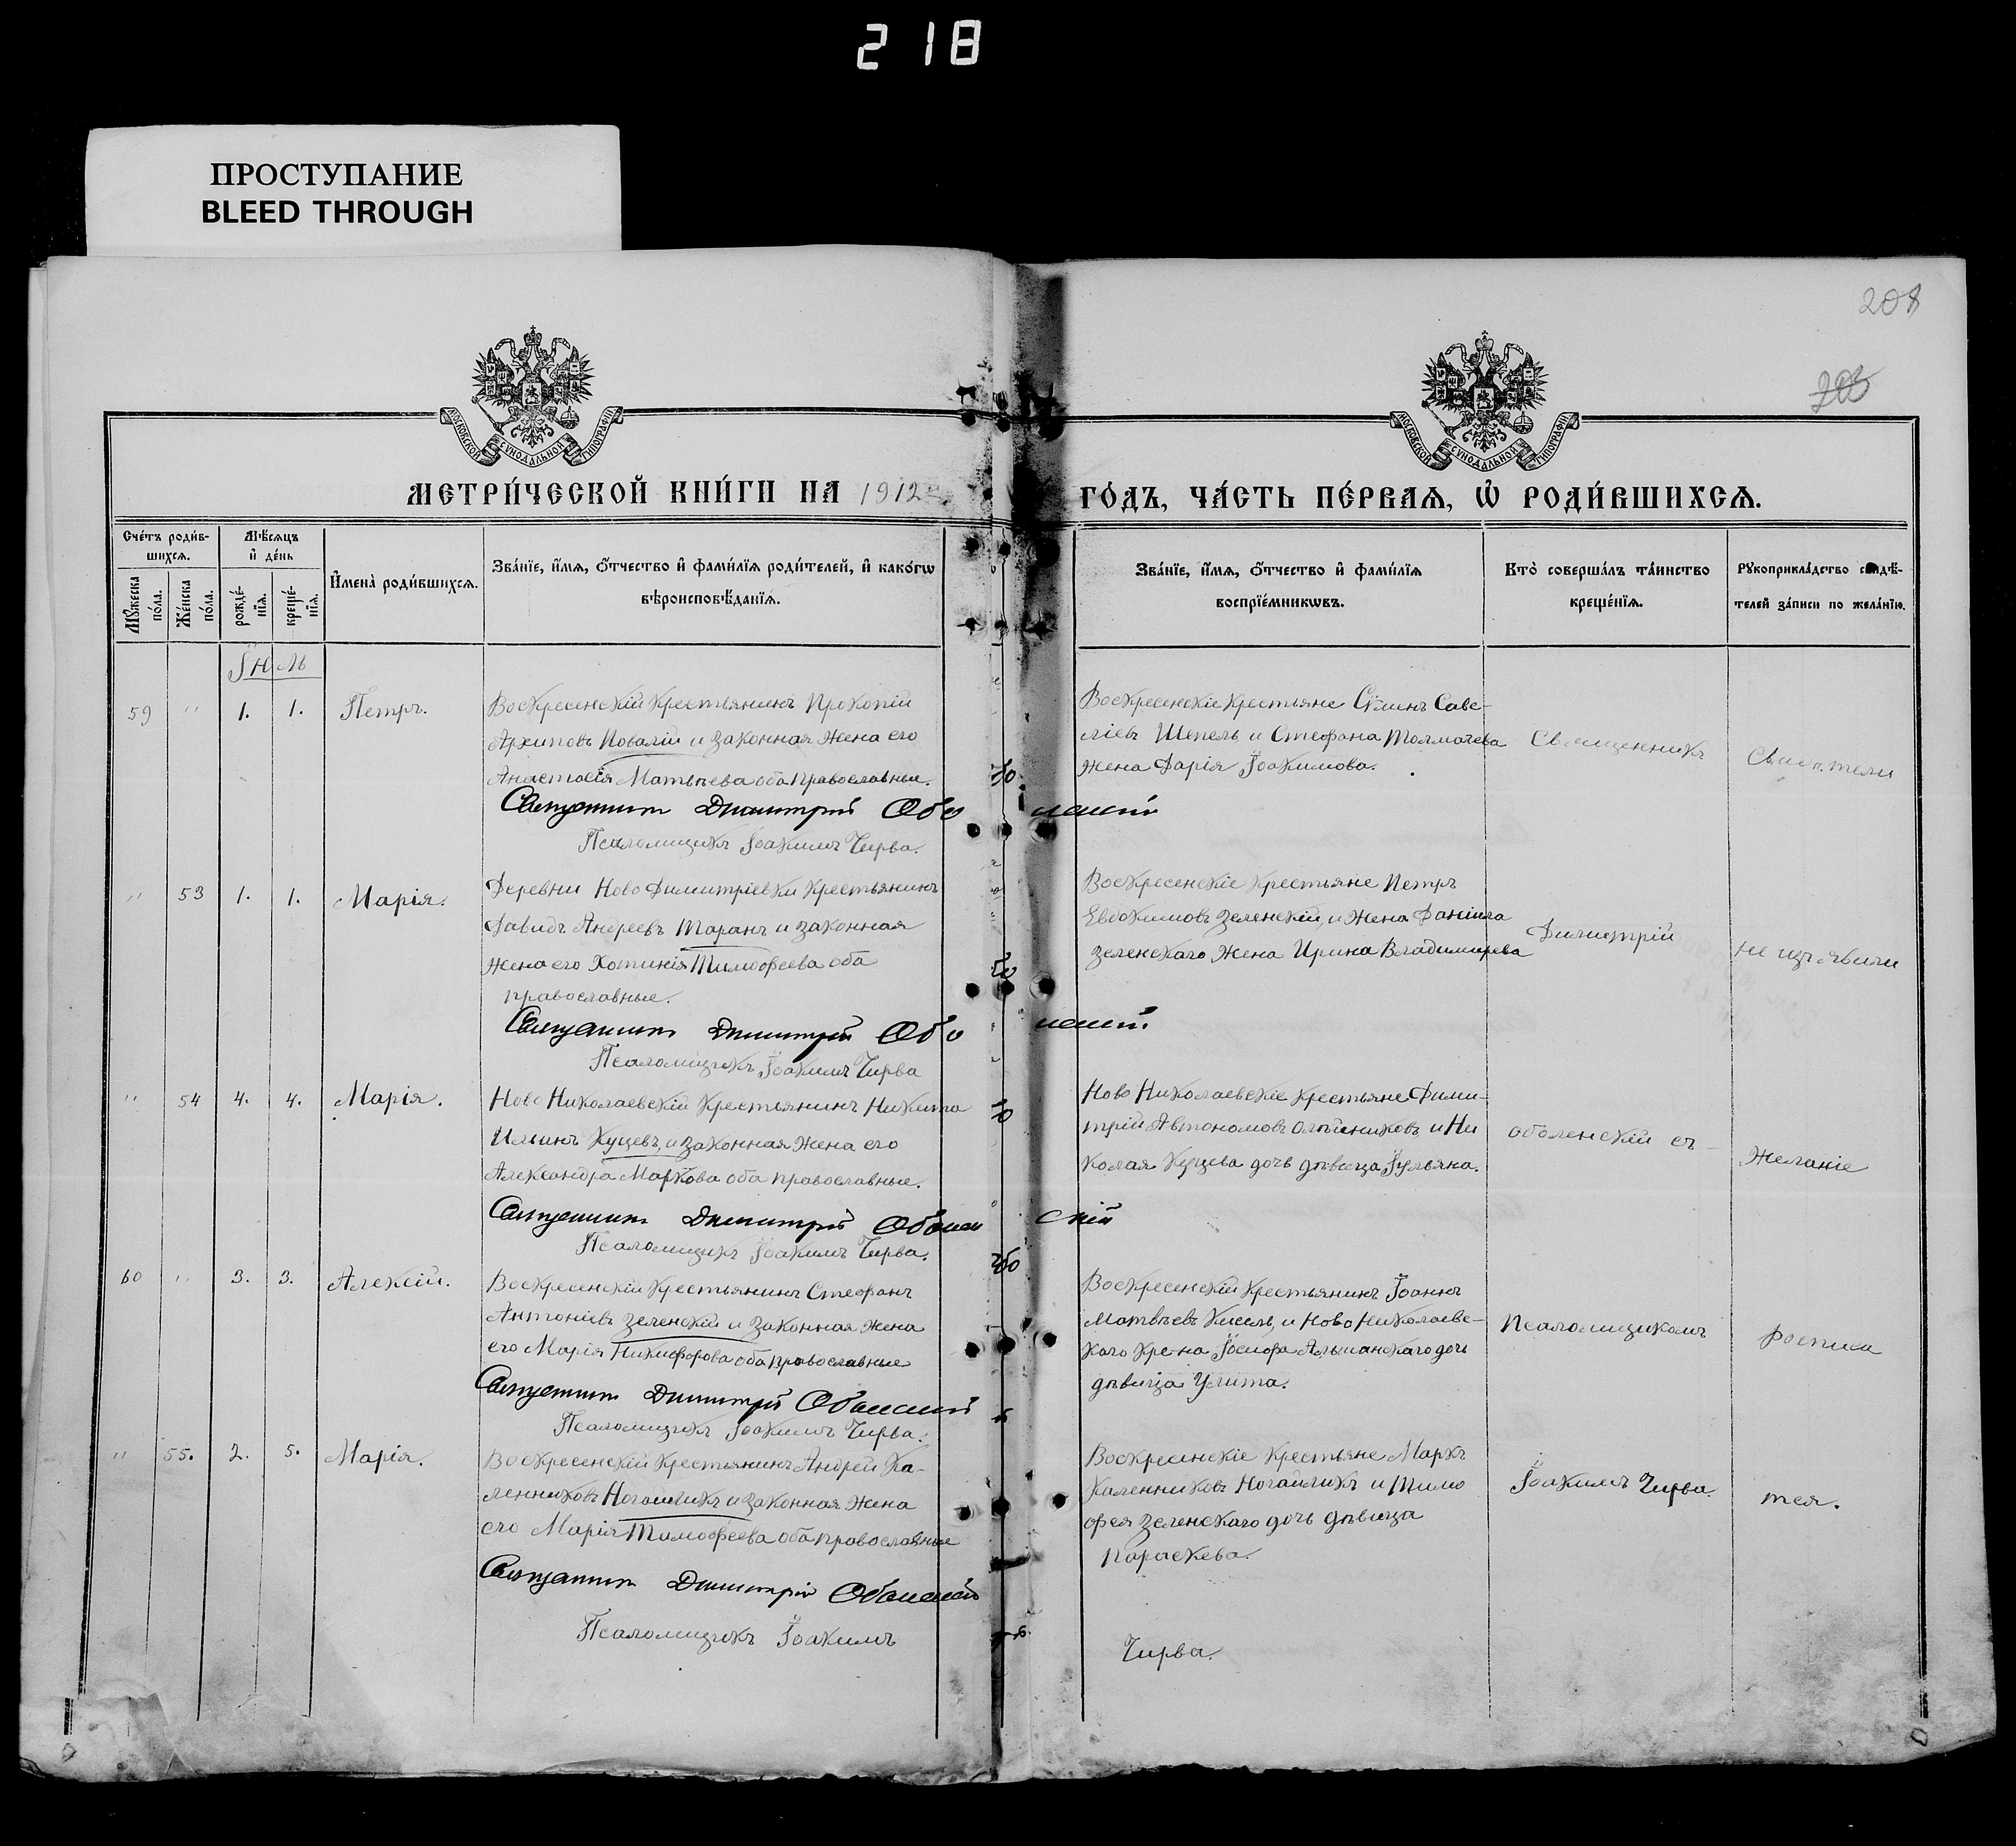 218
ПРОСТУПАНИЕ
BLEED THROUGH
208
МОСКОВСКОЙ СѴНОДАЛЬНОЙ ТИПОГРАФІИ
МОСКОВСКОЙ СѴНОДАЛЬНОЙ ТИПОГРАФІИ
МЕТРИ́ЧЕСКОЙ КНИ́ГИ НА 1912 ГО́ДЪ, ЧА́СТЬ ПЕ́РВАѦ, Ѡ҆ РОДИ́ВШИХСѦ.
Сче́тъ роди́в-
шихсѧ.
Мꙋжеска по́ла.
Же́нска по́ла.
Мѣ́сѧцъ
и҆ де́нь
рожде́-
нїѧ.
креще́-
нїѧ.
И҆мена̀ роди́вшихсѧ.
Зва́нїе, и҆́мѧ, ѻ҆́тчество и҆ фами́лїѧ роди́телей, и҆ како́гѡ
вѣроисповѣ́данїѧ.
Зва́нїе, и҆́мѧ, ѻ҆́тчество и҆ фами́лїѧ
воспрїе́мникѡвъ.
Кто̀ соверша́лъ та́инство
креще́нїѧ.
Рꙋкоприкла́дство свидѣ́-
телей за́писи по жела́нїю.
Іюль
59 " 1. 1. Петръ.
Воскресенскій крестьянинъ Прокопій
Архиповъ Повалій и законная жена его
Анастасія Матвѣева оба православные.
Священникъ Димитрій Оболенскій
Псаломщикъ Іоакимъ Чирва.
Воскресенскіе крестьяне Саве-
ліевъ Шепель, и Стефана Толмачева
жена Дарія Іоакимова.
Священникъ
Свидѣтели
" 53 1. 1. Марія.
Деревни Ново Димитріевки крестьянинъ
Давидъ Андреевъ Таранъ и законная
жена его Хотинія Тимофеева оба
православные.
Священникъ Димитрій Оболенскій
Псаломщикъ Іоакимъ Чирва
Воскресенскіе крестьяне Петръ
Евдокимовъ Зеленскій, и жена Даніила
Зеленскаго жена Ирина Владимирева
Димитрій
не изъявили
" 54 4. 4. Марія.
Ново Николаевскій крестьянинъ Никита
Ильинъ Куцевъ, и законная жена его
Александра Маркова оба православные.
Священникъ Димитрій Оболенскій
Псаломщикъ Іоакимъ Чирва.
Ново Николаевскіе крестьяне Дими-
трій Автономовъ Олѣйниковъ, и Ни
колая Куцева дочь дѣвица Іульяна.
Оболенскій съ
желаніе
60 " 3. 3. Алексій.
Воскресенскій крестьянинъ Стефанъ
Антоніевъ Зеленскій и законная жена
его Марія Никифорова оба православные
Священникъ Димитрій Оболенскій
Псаломщикъ Іоакимъ Чирва.
Воскресенскій крестьянинъ Іоаннъ
Матвѣевъ Кисель, и Ново Николаевс-
каго кре-на Іосифа Альшанскаго дочь
дѣвица Улита.
Псаломщикомъ
росписа
" 55. 2. 5. Марія.
Воскресенскій крестьянинъ Андрей Ка-
ленниковъ Ногайликъ и законная жена
его Марія Тимофеева оба православные
Священникъ Димитрій Оболенскій
Псаломщикъ Іоакимъ Чирва.
Воскресенскіе крестьяне Маркъ
Каленниковъ Ногайликъ и Тимо
фея Зеленскаго дочь дѣвица
Параскева.
Іоакимъ Чирва.
тся.